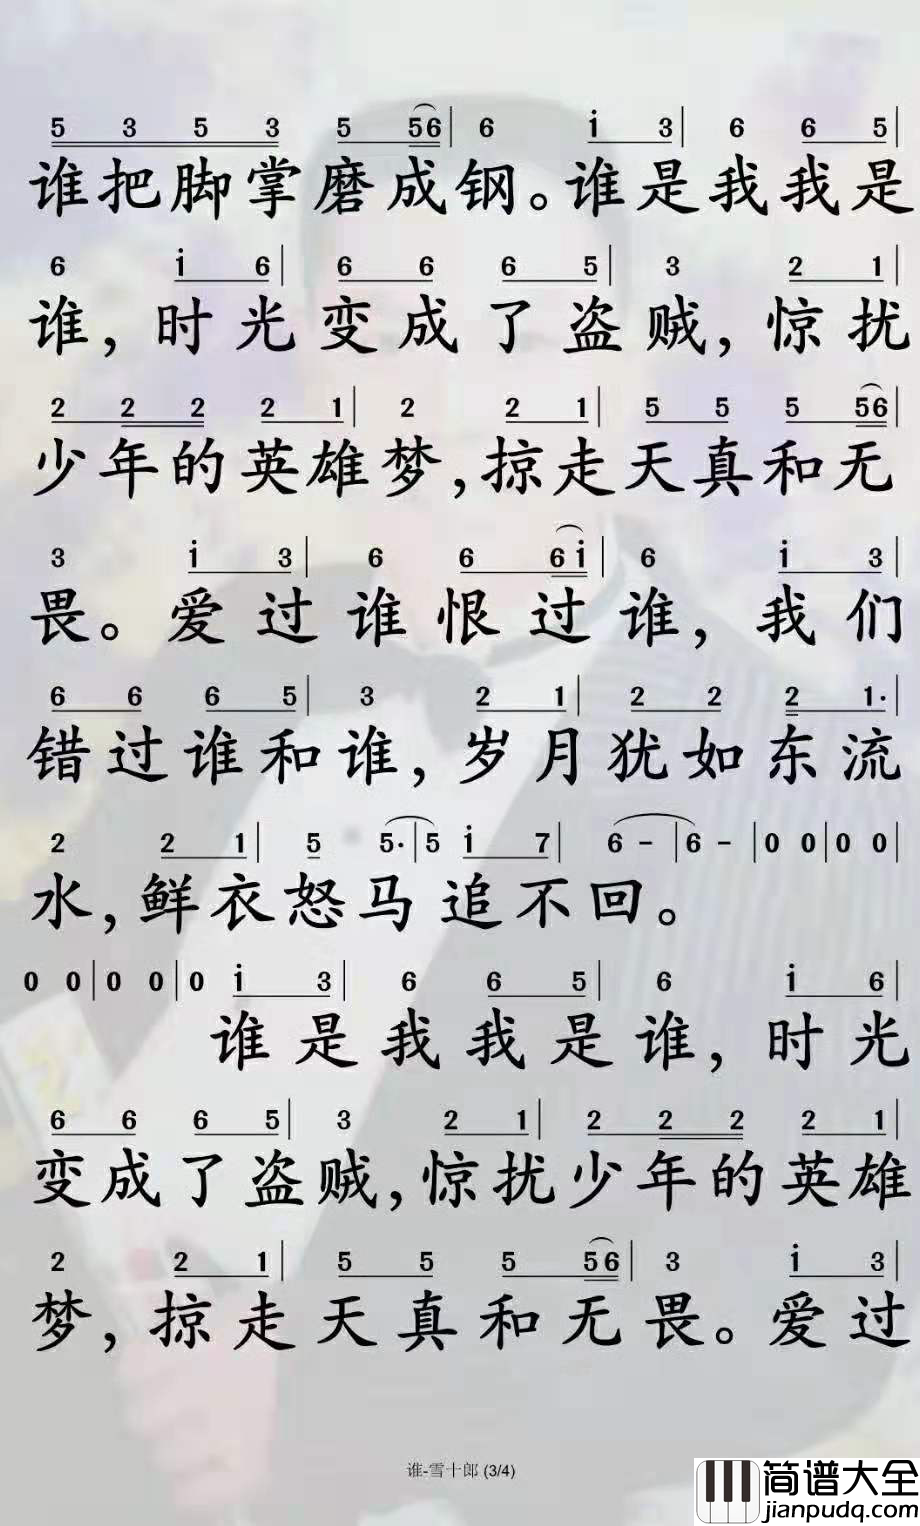 5 3 5 3 5 56| 6 i 3| 6 6 5|
谁把脚掌磨成钢。谁是我我是
6 i 6| 6 6 6 5| 3 2 1|
谁,时光变成了盗贼,惊扰
2 2 2 2 1| 2 2 1| 5 5 5 56|
少年的英雄梦,掠走天真和无
3 i 3| 6 6 6i| 6 i 3|
畏。爱过谁恨过谁,我们
6 6 6 5| 3 2 1| 2 2 2 1·|
错过谁和谁,岁月犹如东流
2 2 1| 5 5·|5 i 7| 6 -|6 -|0 0|0 0|
水,鲜衣怒马追不回。
0 0|0 0|0 i 3| 6 6 5| 6 i 6|
谁是我我是谁,时光
6 6 6 5| 3 2 1| 2 2 2 2 1|
变成了盗贼,惊扰少年的英雄
2 2 1| 5 5 5 56| 3 i 3|
梦,掠走天真和无畏。爱过
谁-雪十郎 (3/4)
简谱大全
jianpudq.com